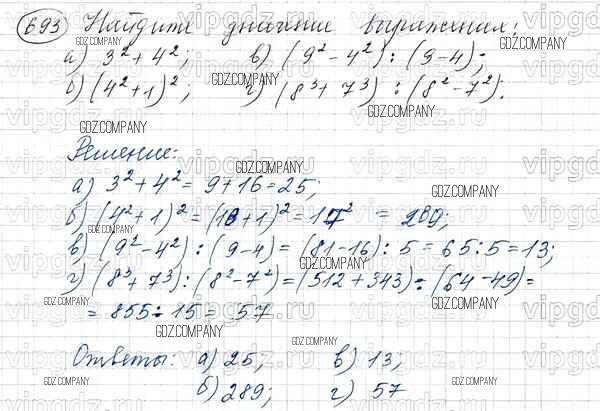 693 Найдите значение выражения:
а) 3² + 4²; в) (9² - 4²) : (9 - 4);
б) (4² + 1)²; г) (8³ + 7³) : (8² - 7²).
Решение:
а) 3² + 4² = 9 + 16 = 25;
б) (4² + 1)² = (16 + 1)² = 17² = 289;
в) (9² - 4²) : (9 - 4) = (81 - 16) : 5 = 65 : 5 = 13;
г) (8³ + 7³) : (8² - 7²) = (512 + 343) : (64 - 49) =
= 855 : 15 = 57.
Ответы: а) 25; в) 13;
б) 289; г) 57